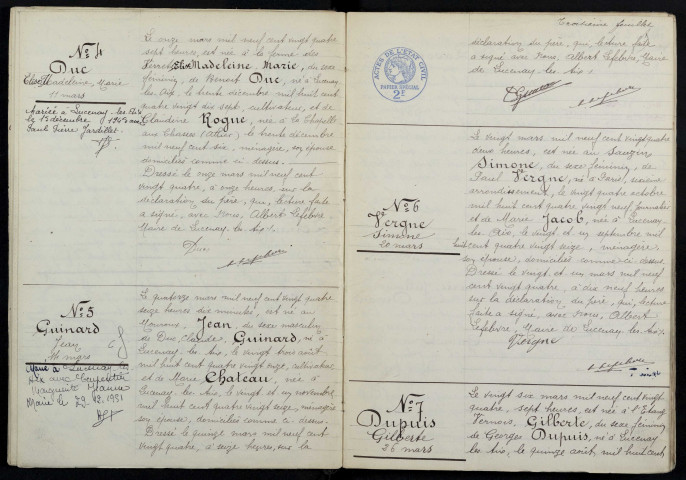 N° 4
Duc
Elise Madeleine, Marie
11 mars
Mariée à Lucenay les Aix
le 13 décembre 1945 avec
Paul Pierre Jardillet
Le onze mars mil neuf cent vingt quatre
sept heures, est née à la ferme des
Elise Madeleine Marie, du sexe
féminin, de Benoit Duc, né à Lucenay
les Aix, le trente décembre mil huit cent
quatre vingt dix sept, cultivateur, et de
Claudine Rogue, née à la Chapelle
aux Chasses (Allier), le trente décembre
mil neuf cent six, ménagère, son épouse
domiciliés comme ci dessus.
Dressé le onze mars mil neuf cent
vingt quatre, à onze heures, sur la
déclaration du père, qui, lecture faite
a signé, avec Nous, Albert Lefebvre,
Maire de Lucenay les Aix.
Duc
A. Lefebvre
N° 5
Guinard
Jean
14 mars
Marié à Lucenay les
Aix avec
Marguerite Jeanne
Mairie le 29.12.1951
Le quatorze mars mil neuf cent vingt quatre
seize heures dix minutes, est né au
Jean, du sexe masculin
de Claude Guinard, né à
Lucenay les Aix, le vingt trois août
mil huit cent quatre vingt onze, cultivateur
et de Marie Chateau, née à
Lucenay les Aix, le vingt et un novembre
mil huit cent quatre vingt seize, ménagère
son épouse, domiciliés comme ci dessus.
Dressé le quinze mars mil neuf cent
vingt quatre, à seize heures, sur la
Troisième feuillet
ACTES DE L'ETAT CIVIL
PAPIER SPECIAL
2F
déclaration du père, qui, lecture faite
a signé avec Nous, Albert Lefebvre, Maire
de Lucenay les Aix.
A. Lefebvre
N° 6
Vergne
Simone
20 mars
Le vingt mars mil neuf cent vingt quatre
deux heures, est née au
Simone, du sexe féminin, de
Paul Vergne, né à Paris,
arrondissement, le vingt quatre octobre
mil huit cent quatre vingt neuf, journalier
et de Marie Jacob, née à Lucenay
les Aix, le vingt et un septembre mil
huit cent quatre vingt seize, ménagère
son épouse, domiciliés comme ci dessus.
Dressé le vingt et un mars mil neuf
cent vingt quatre, à dix neuf heures
sur la déclaration du père, qui, lecture
faite a signé, avec Nous, Albert
Lefebvre, Maire de Lucenay les Aix.
Vergne
A. Lefebvre
N° 7
Dupuis
Gilberte
26 mars
Le vingt six mars mil neuf cent vingt
quatre, sept heures, est née à l'Etang
Vernois, Gilberte, du sexe féminin
de Georges Dupuis, né à Lucenay
les Aix, le quinze août mil huit cent